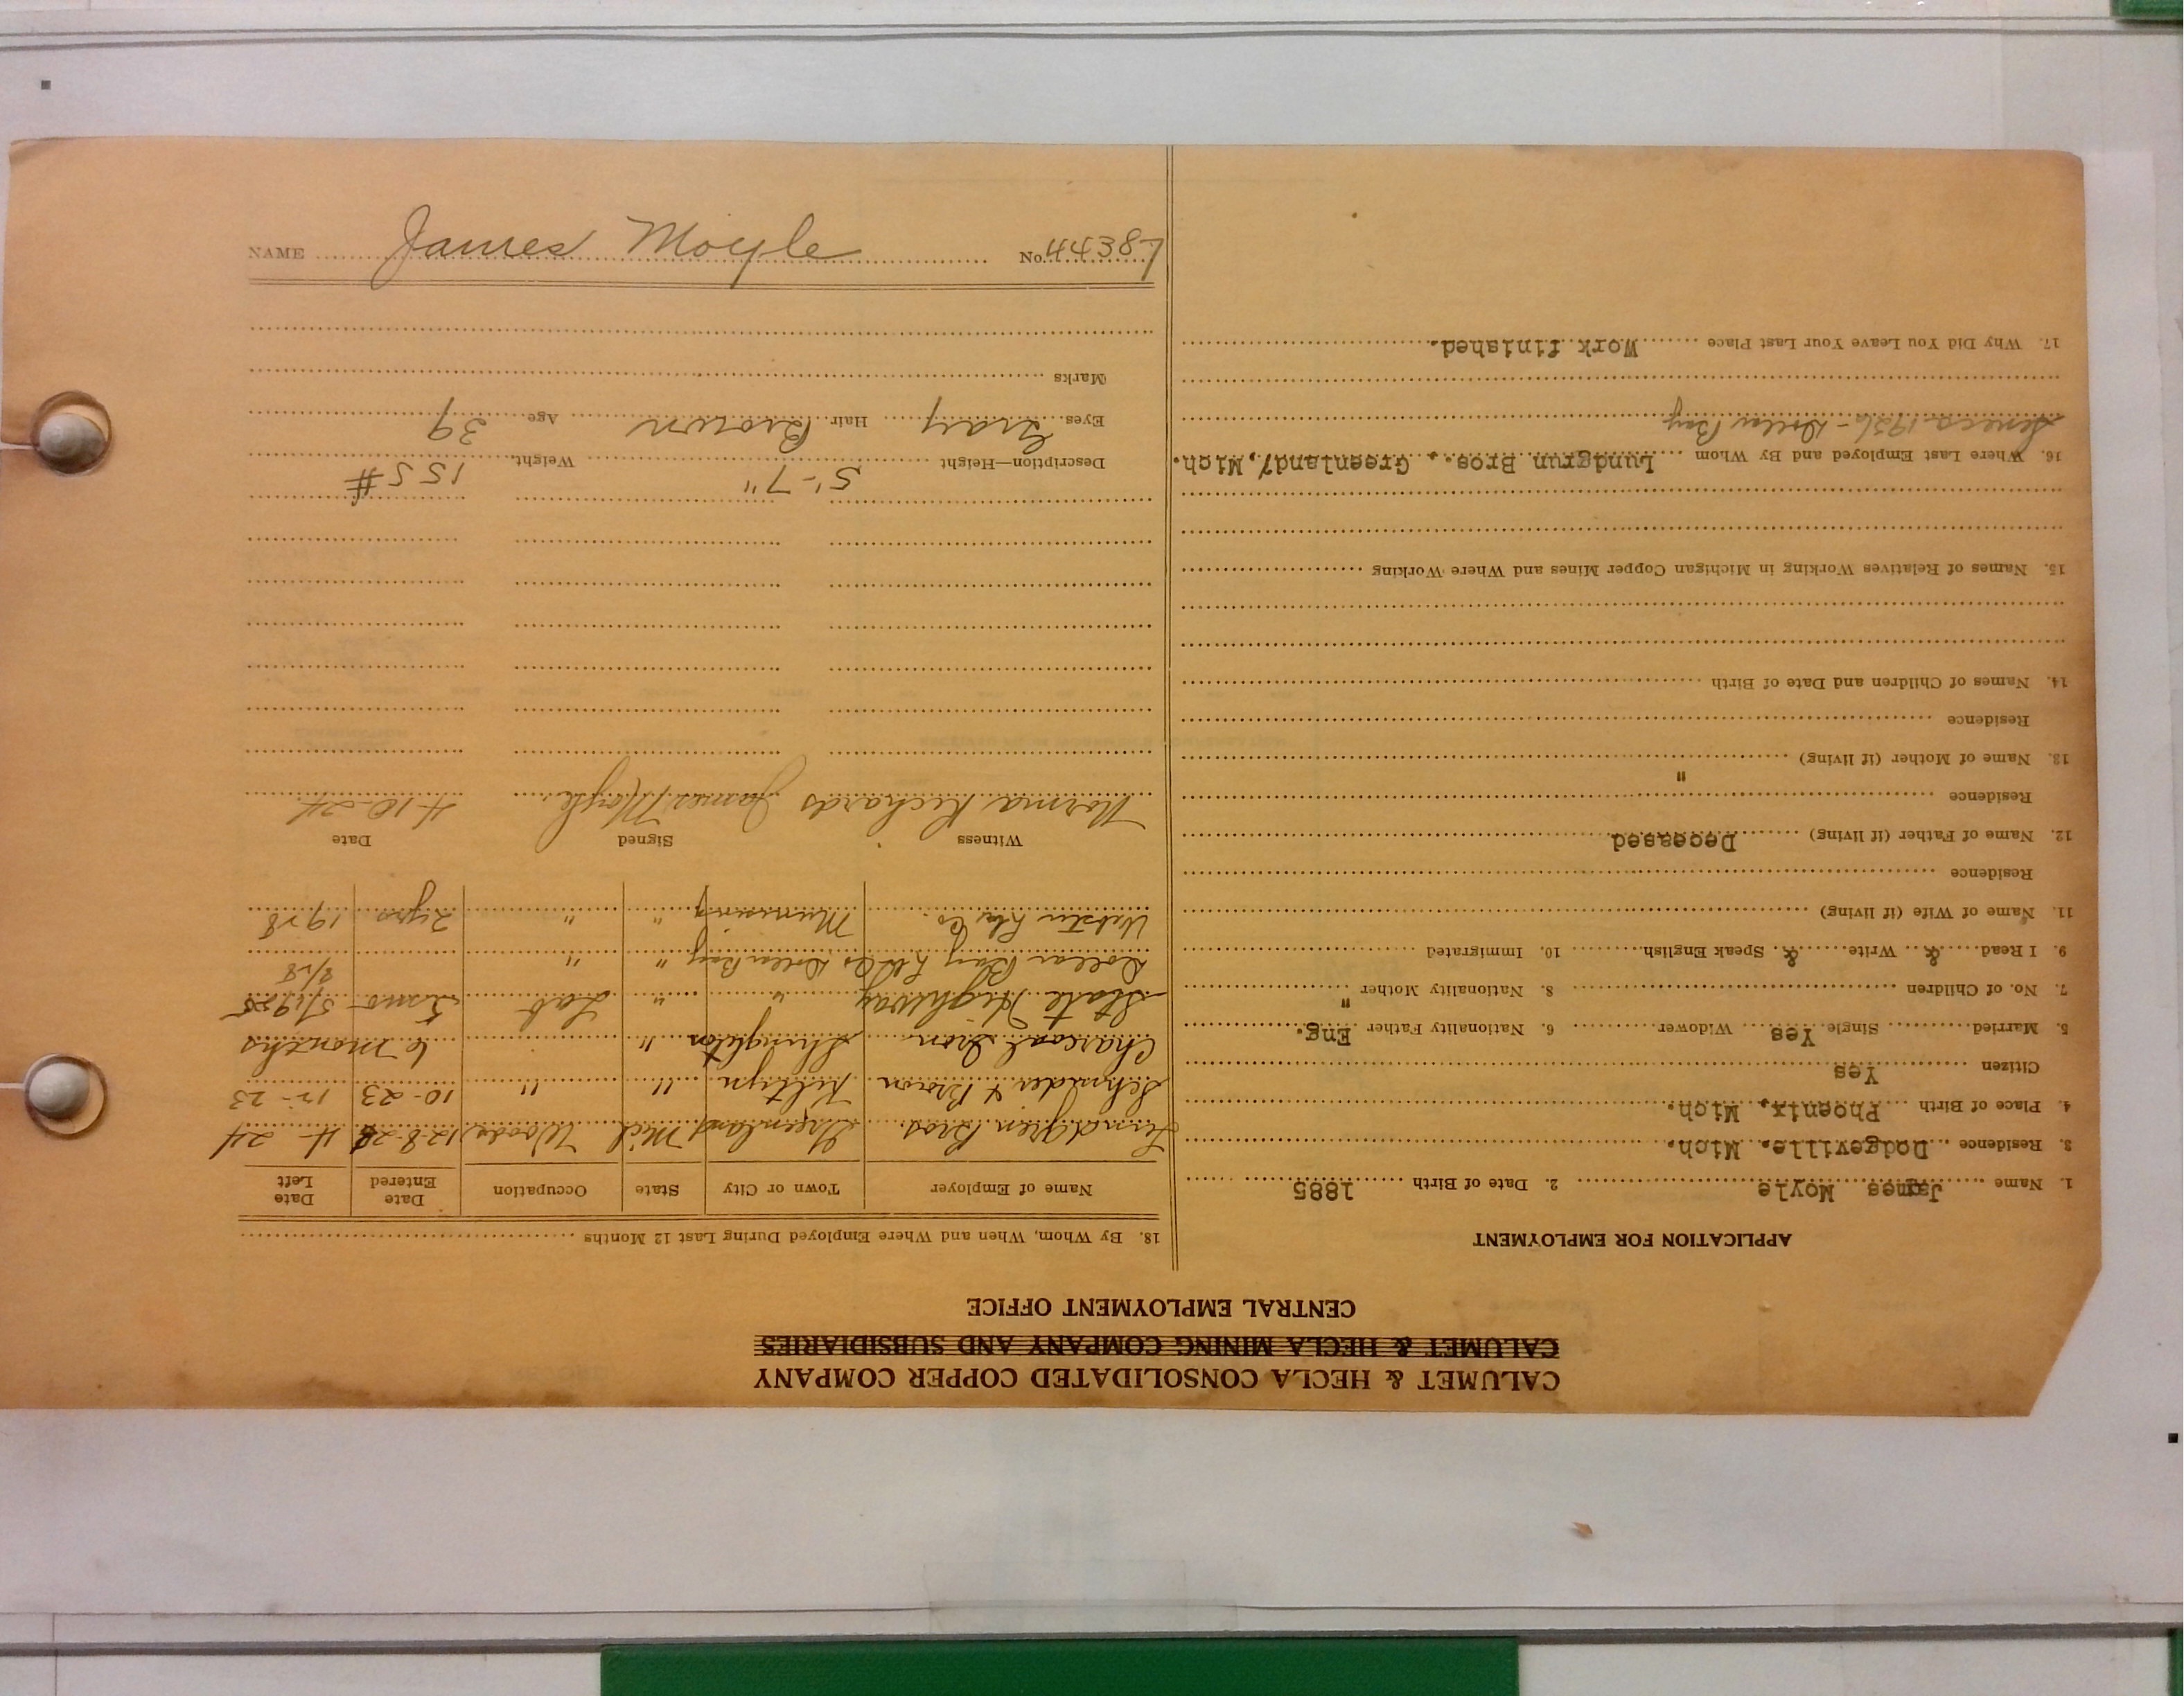 CALUMET & HECLA CONSOLIDATED COPPER COMPANY
CALUMET & HECLA MINING COMPANY AND SUBSIDIARIES
CENTRAL EMPLOYMENT OFFICE
APPLICATION FOR EMPLOYMENT
1. Name James Moyle 2. Date of Birth 1885
3. Residence Dodgeville. Mich.
4. Place of Birth Phoenix, Mich.
Citizen Yes
5. Married Single Yes Widower 6. Nationality Father Eng.
7. No. of Children 8. Nationality Mother "
9. I Read & Write & Speak English 10. Immigrated
11. Name of Wife (if living)
Residence
12. Name of Father (if living) Deceased
Residence
13. Name of Mother (if living) "
Residence
14. Names of Children and Date of Birth
15. Names of Relatives Working in Michigan Copper Mines and Where Working
16. Where Last Employed and By Whom Lundgrun Bros., Greenland7,Mich.
Seneca 1936 - Dollar Bay
17. Why Did You Leave Your Last Place Work finished.
18. By Whom, When and Where Employed During Last 12 Months
Name of Employer Town or City State Occupation Date Entered Date Left
Lindgren Bros. Greenland Mich Woods 12-8-23 4-24
Schnider & Brown " " 10-23 12-23
Charcoal Iron Shingleton " 6 months
State Highway " " Lab 5 mos 5/1925
8/28
Dollar Bay Co Dollar Bay " "
Webster Co. Munising " " 2 yrs 1928
Witness Signed Date
Norma Richards James Moyle. 4-10-24
Description—Height 5'-7" Weight 155#
Eyes Gray Hair Brown Age 39
Marks
NAME James Moyle No.